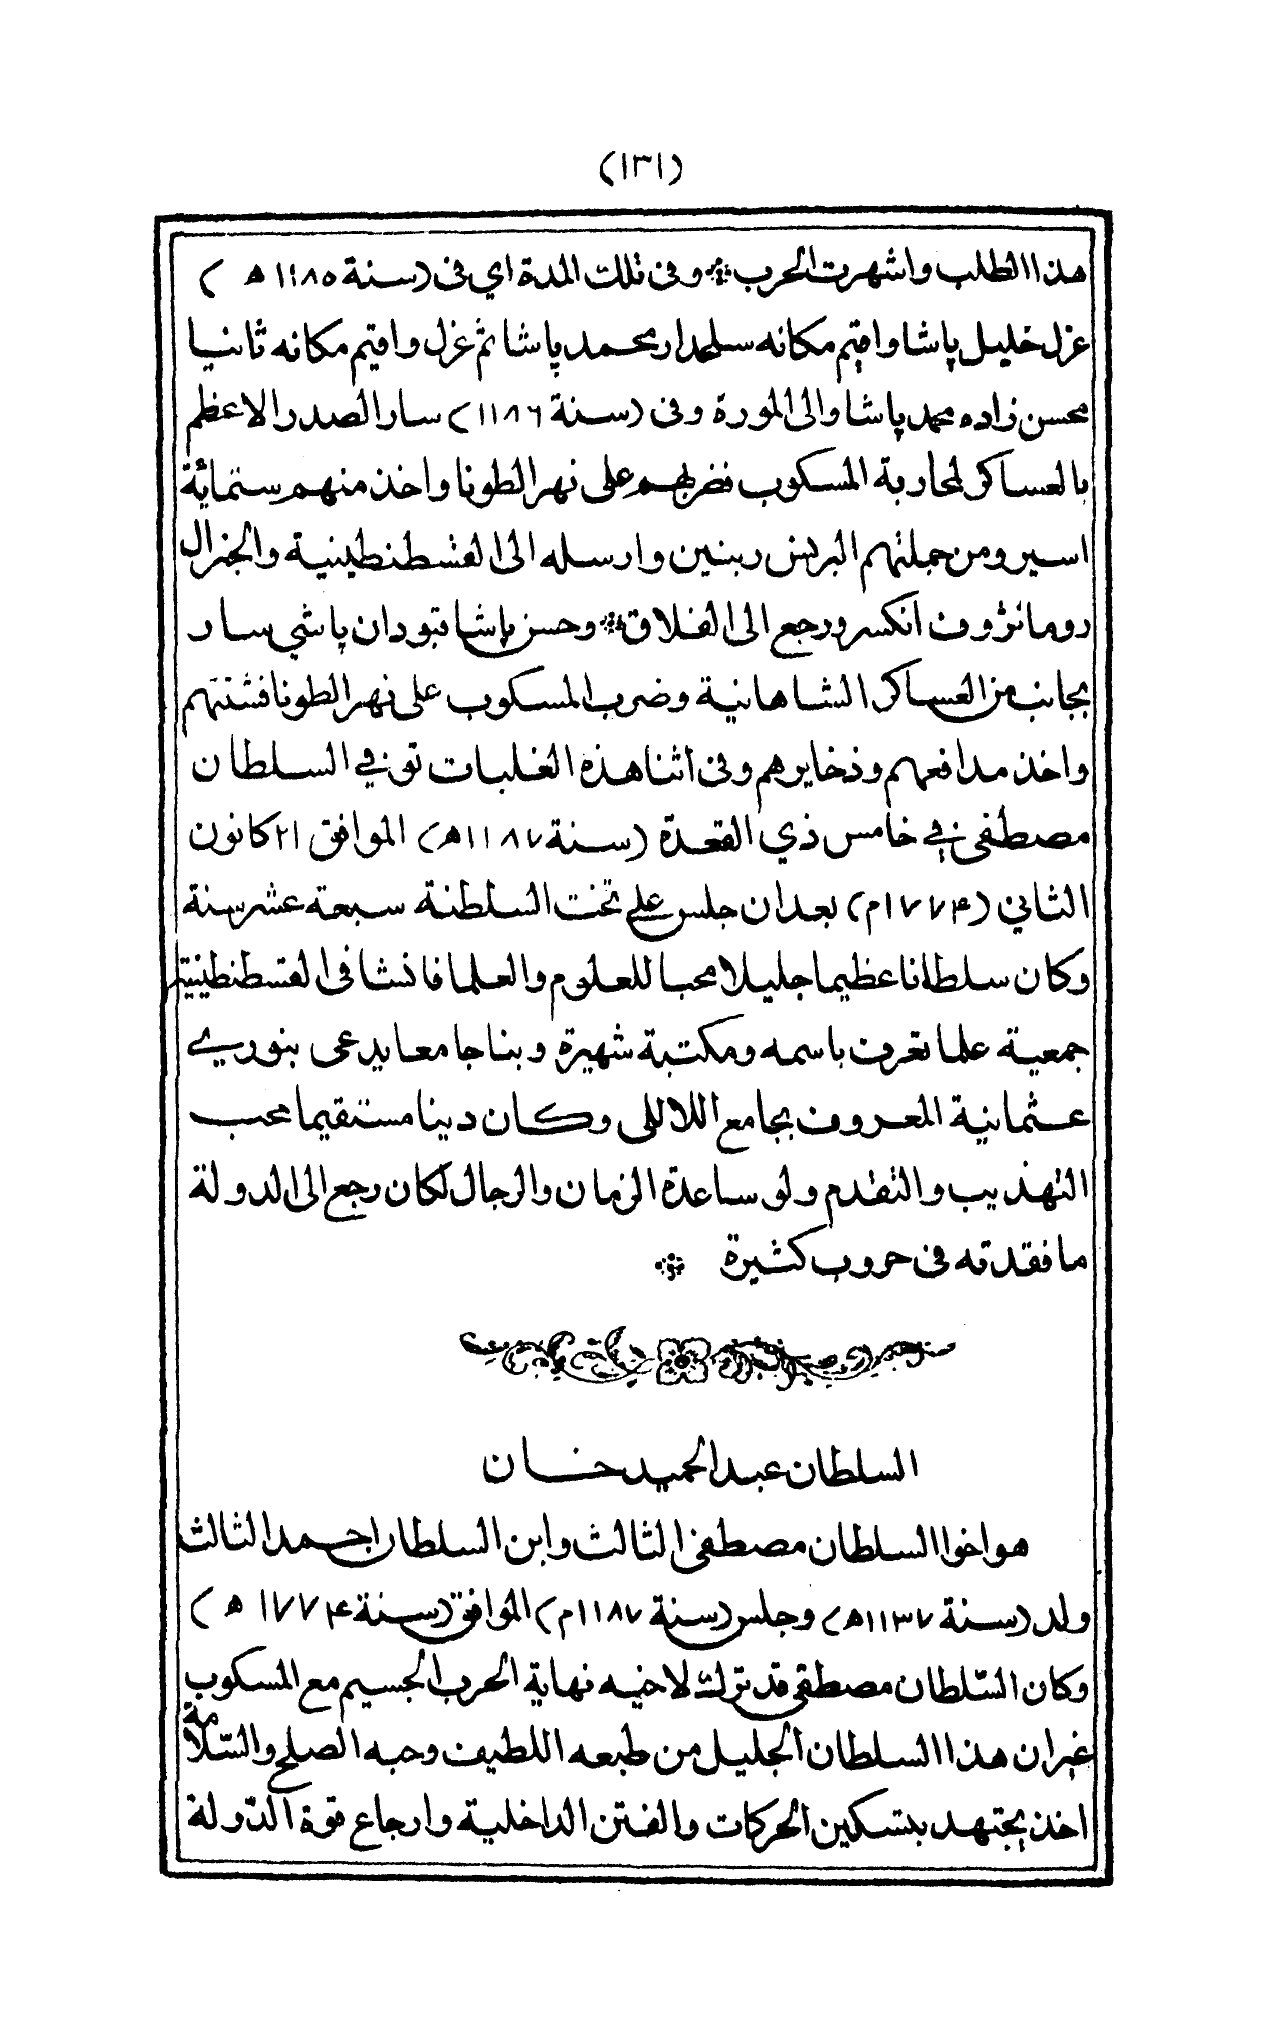 (١٣١)
هذا الطلب واشهرت الحرب * وفى تلك المدة اي فى (سنة ١١٨٥ ه )
عزل خليل پاشا واقيم مكانه سلحدار محمد پاشا ثم عزل واقيم مكانه ثانيا
محسن زاده محمد پاشا والى المورة وفى (سنة ١١٨٦) سار الصدر الاعظم
بالعساكر لمحاربة المسكوب فضربهم على نهر الطونا واخذ منهم ستمائة
اسير ومن جملتهم البرينس ربنين وارسله الى القسطنطينية والجنرال
رومانزوف انكسر ورجع الى الفلاق * وحسن پاشا قبودان پاشي سار
بجانب من العساكر الشاهانية وضرب المسكوب على نهر الطونا فشتتهم
واخذ مدافعهم وذخايرهم وفى اثنا هذه الغلبات توفي السلطان
مصطفى في خامس ذي القعدة (سنة ١١٨٧ه) الموافق ٢١ كانون
الثاني (١٧٧٤م) بعد ان جلس علي تخت السلطنة سبعة عشر سنة
وكان سلطانا عظيما جليلا محبا للعلوم والعلما فانشا فى القسطنطينية
جمعية علما تعرف باسمه ومكتبة شهيرة وبنا جامعا يدعى بنوري
عثمانية المعروف بجامع اللاللى وكان دينا مستقيما محب
التهذيب والتقدم ولو ساعدة الزمان والرجال لكان رجع الى الدولة
ما فقدته فى حروب كثيرة *
السلطان عبد الحميد خان
هو اخوا السلطان مصطفى الثالث وابن السلطان احمد الثالث
ولد (سنة ١١٣٧ه) وجلس (سنة ١١٨٧م) الموافق (سنة ١٧٧٤ ه )
وكان السّلطان مصطفى قد ترك لاخيه نهاية الحرب الجسيم مع المسكوب
غير ان هذا السلطان الجليل من طبعه اللطيف وحبه الصلح والسّلامة
اخذ يجتهد بتسكين الحركات والفتن الداخلية وارجاع قوة الدّولة